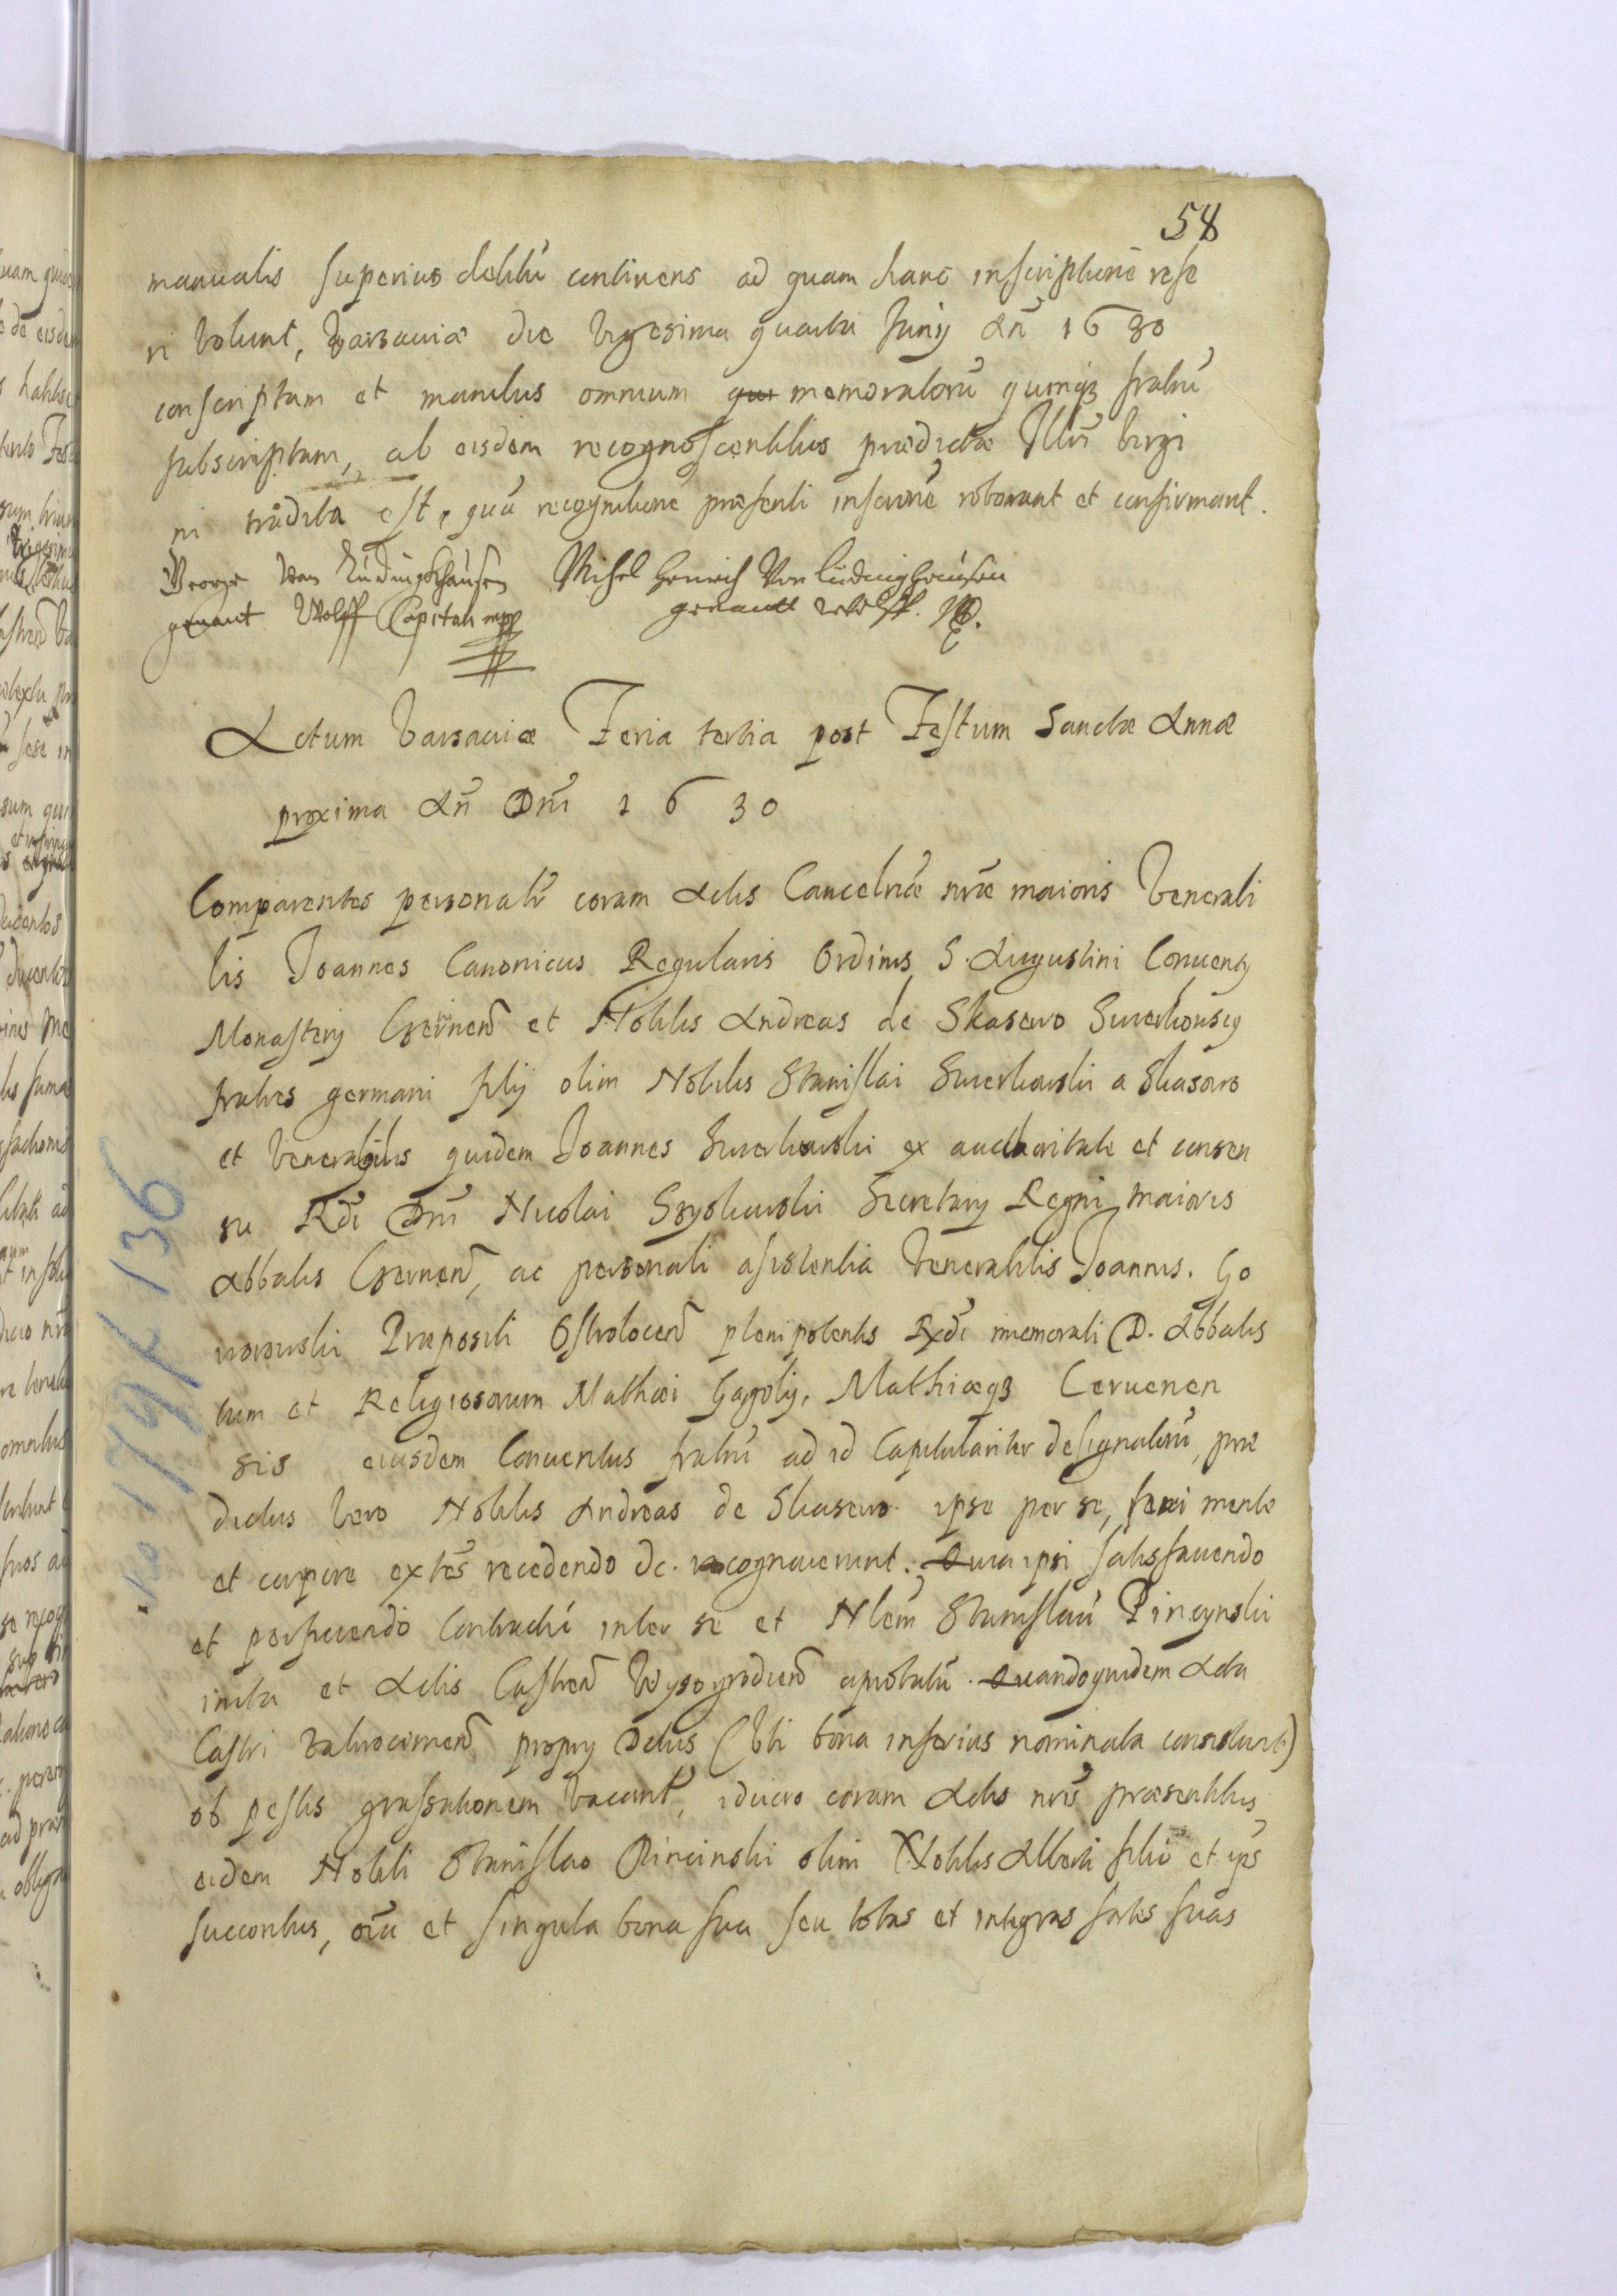 58
manualis superius debitū continens ad quam hanc inscriptionē refe
ri volunt, Varsaviæ die vigesima quarta Junij Añ 1630
conscriptam et manibus omnium memoratorū quinqꝫ fratrū
subscriptam, ab eisdem recognoscentibus prædictæ Illri Virgi
ni tradita est, quā recognitione præsenti inscrōne roborant et confirmant.
George Von Lüdingkhausen Michel Henrich Von Lüdinghausen
genant Wolff Capitan mpp genandt Wolff. Mp.
Actum Varsaviæ Feria tertia post Festum Sanctæ Annæ
proxima Añ Dñi 1630
Comparentes personalr coram Actis Cancelriæ nræ maioris Venerabi
lis Joannes Canonicus Regularis Ordinis S. Augustini Conventꝯ
Monasterij Czervineñ et Nobilis Andreas de Skasewo Swierkowscy
fratres germani filij olim Nobilis Stanislai Swierkowski a Skasewo
et Venerabilis quidem Joannes Swierkowski ex authoritate et consen
su Rdi Dñi Nicolai Szyszkowski Secretarij Regni maioris
Abbatis Czerweneñ, ac personali assistentia Venerabilis Joannis. Go
worowski Præpositi Ostroloceñ plenipotentis Rdi memorati D. Abbatis
tum et Religiosorum Mathæi Mathiæqꝫ Cervenen
sis eiusdem Conventus fratrū ad id Capitulariter designatorū, præ
dictus vero Nobilis Andreas de Skasewo ipse per se, sani mente
et corpore extes recedendo dc. recognoverunt. Quia ipsi satisfaciendo
et perficiendo Contractū inter se et Nlem Stanislaū Pincynski
inita et Actis Castreñ Wysogrodieñ aprobatū. Quandoquidem Acta
Castri Zakrocimeñ proprij Actus (Ubi bona inferius nominata consistunt)
ob pestis grassationem vacant, idcirco coram Actis nris præsentibus
eidem Nobili Stanislao Pincinski olim Nobilis Alberti filio et ips
succoribus, oīa et singula bona sua seu totas et integras sortes suas